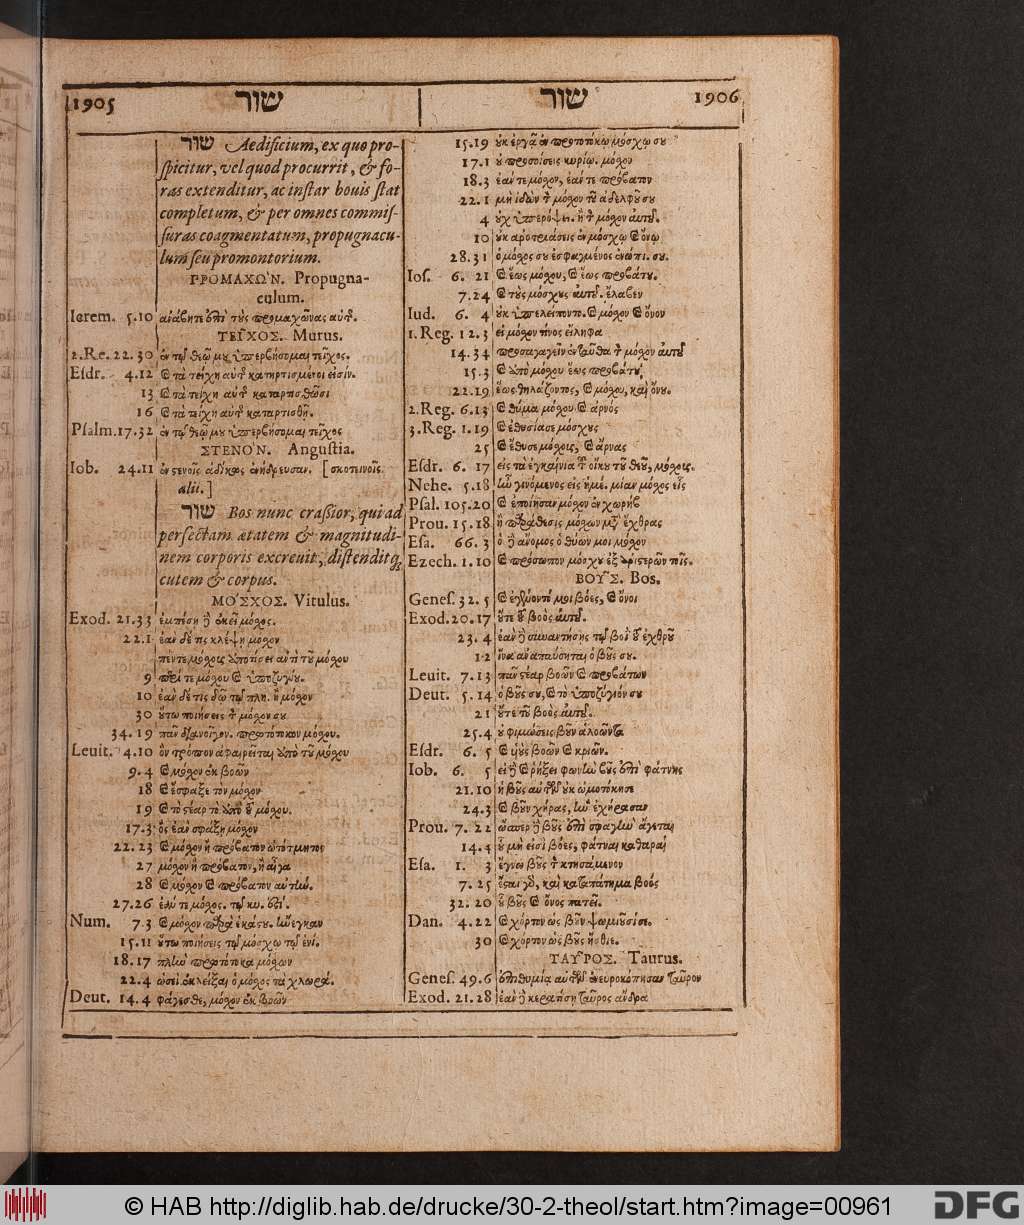 1905 שור
שור Aedificium, ex quo pro-
spicitur, vel quod procurrit, & fo-
ras extenditur, ac instar bouis stat
completum, & per omnes commis-
suras coagmentatum, propugnacu-
lum seu promontorium.
ΠΡΟΜΑΧΩ'Ν. Propugna-
culum.
Ierem. 5.10 ἀνάβητε ἐπὶ τοὺς προμαχῶνας αὐτῆς
ΤΕΙ͂ΧΟΣ. Murus.
2.Re. 22.30 ἐν τῷ θεῷ μου ὑπερβήσομαι τεῖχος.
Esdr. 4.12 καὶ τὰ τείχη αὐτῆς κατηρτισμένοι εἰσίν.
13 καὶ τὰ τείχη αὐτῆς καταρτισθῶσι
16 καὶ τὰ τείχη αὐτῆς καταρτισθῇ.
Psalm. 17.32 ἐν τῷ θεῷ μου ὑπερβήσομαι τεῖχος
ΣΤΕΝΟ'Ν. Angustia.
Iob. 24.11 ἐν στενοῖς ἀδίκως ἐνήδρευσαν. [σκοτεινοῖς.
alii.]
שור Bos nunc crassior, qui ad
perfectam aetatem & magnitudi-
nem corporis excreuit, distenditq;
cutem & corpus.
ΜΟ'ΣΧΟΣ. Vitulus.
Exod. 21.33 ἐμπέσῃ ἐκεῖ μόσχος.
22.1 ἐὰν δέ τις κλέψῃ μόσχον
πέντε μόσχους ἀποτίσει ἀντὶ τοῦ μόσχου
9 περί τε μόσχου καὶ ὑποζυγίου.
10 ἐὰν δέ τις δῷ τῷ πλη. ἢ μόσχον
30 οὕτω ποιήσεις τὸν μόσχον σου
34.19 πᾶν διανοῖγον. πρωτότοκον μόσχου.
Leuit. 4.10 ὃν τρόπον ἀφαιρεῖται ἀπὸ τοῦ μόσχου
9.4 καὶ μόσχον ἐκ βοῶν
18 καὶ ἔσφαξε τὸν μόσχον
19 καὶ τὸ στέαρ τὸ ἀπὸ τοῦ μόσχου.
17.3 ὃς ἐὰν σφάξῃ μόσχον
22.23 καὶ μόσχον ἢ πρόβατον ὠτότμητον
27 μόσχον ἢ πρόβατον, ἢ αἶγα
28 καὶ μόσχον καὶ πρόβατον αὐτὴν.
27.26 ἐάν τε μόσχος. τῷ κυ. ἐστί.
Num. 7.3 καὶ μόσχον παρὰ ἑκάστου. ἤνεγκαν
15.11 οὕτω ποιήσεις τῷ μόσχῳ τῷ ἑνί.
18.17 πλὴν πρωτότοκα μόσχων
22.4 ὡσεὶ ἐκλείξαι ὁ μόσχος τὰ χλωρά.
Deut. 14.4 φάγεσθε, μόσχον ἐκ βοῶν
שור 1906
15.19 οὐκ ἐργᾷ ἐν πρωτοτόκῳ μόσχῳ σου
17.1 οὐ προσοίσεις κυρίῳ. μόσχον
18.3 ἐάν τε μόσχον, ἐάν τε πρόβατον
22.1 μὴ ἰδὼν τὸν μόσχον τοῦ ἀδελφοῦ σου
4 οὐχ ὑπερόψει. ἢ τὸν μόσχον αὐτοῦ.
10 οὐκ ἀροτριάσεις ἐν μόσχῳ καὶ ὄνῳ
28.31 ὁ μόσχος σου ἐσφαγμένος ἐνώπι. σου.
Ios. 6.21 καὶ ἕως μόσχου, καὶ ἕως προβάτου.
7.24 καὶ τοὺς μόσχους αὐτοῦ. ἔλαβεν
Iud. 6.4 οὐκ ὑπελείποντο. καὶ μόσχον καὶ ὄνον
1.Reg. 12.3 εἰ μόσχον τινος εἴληφα
14.34 προσαγαγεῖν ἐνταῦθα τὸν μόσχον αὐτοῦ
15.3 καὶ ἀπὸ μόσχου ἕως προβάτου,
22.19 ἕως θηλάζοντος, καὶ μόσχου, καὶ ὄνου.
2.Reg. 6.13 καὶ θῦμα μόσχου καὶ ἀρνός
3.Reg. 1.19 καὶ ἐθυσίασε μόσχους
25 καὶ ἔθυσε μόσχους, καὶ ἄρνας
Esdr. 6.17 εἰς τὰ ἐγκαίνια τοῦ οἴκου τοῦ θεοῦ, μόσχους.
Nehe. 5.18 ἦν γινόμενος εἰς ἡμέ. μίαν μόσχος εἷς
Psal. 105.20 καὶ ἐποίησαν μόσχον ἐν χωρὴβ
Prou. 15.18 ἢ παράθεσις μόσχων μετὰ ἔχθρας
Esa. 66.3 ὁ δὲ ἄνομος ὁ θύων μοι μόσχον
Ezech. 1.10 καὶ πρόσωπον μόσχου ἐξ ἀριστερῶν τοῖς.
ΒΟΥ͂Σ. Bos.
Genes. 32.5 καὶ ἐγένοντό μοι βόες, καὶ ὄνοι
Exod. 20.17 οὔτε τοῦ βοὸς αὐτοῦ.
23.4 ἐὰν δὲ συναντήσῃς τῷ βοῒ τοῦ ἐχθροῦ
12 ἵνα ἀναπαύσηται ὁ βοῦς σου.
Leuit. 7.13 πᾶν στέαρ βοῶν καὶ προβάτων
Deut. 5.14 ὁ βοῦς σου, καὶ τὸ ὑποζύγιόν σου
21 οὔτε τοῦ βοὸς αὐτοῦ.
25.4 οὐ φιμώσεις βοῦν ἀλοῶντα
Esdr. 6.5 καὶ υἱοὺς βοῶν καὶ κριῶν.
Iob. 6.5 εἰ δὲ καὶ ῥήξει φωνὴν βοῦς ἐπὶ φάτνης
21.10 ἡ βοῦς αὐτῶν οὐκ ὠμοτόκησε
24.3 καὶ βοῦν χήρας, ἣν ἐχήρασαν
Prou. 7.22 ὥσπερ δὲ βοῦς ἐπὶ σφαγὴν ἄγεται
14.4 οὗ μή εἰσι βόες, φάτναι καθαραὶ
Esa. 1.3 ἔγνω βοῦς τὸν κτησάμενον
7.25 ἔσται γὰρ, καὶ καταπάτημα βοός
32.20 οὗ βοῦς καὶ ὄνος πατεῖ.
Dan. 4.22 καὶ χόρτον ὡς βοῦν ψωμιοῦσί σε.
30 καὶ χόρτον ὡς βοῦς ἤσθιε.
ΤΑΥ͂ΡΟΣ. Taurus.
Genes. 49.6 ἐπιθυμίᾳ αὐτῶν ἐνευροκόπησαν ταῦρον
Exod. 21.28 ἐὰν δὲ κερατίσῃ ταῦρος ἄνδρα
© HAB http://diglib.hab.de/drucke/30-2-theol/start.htm?image=00961
DFG